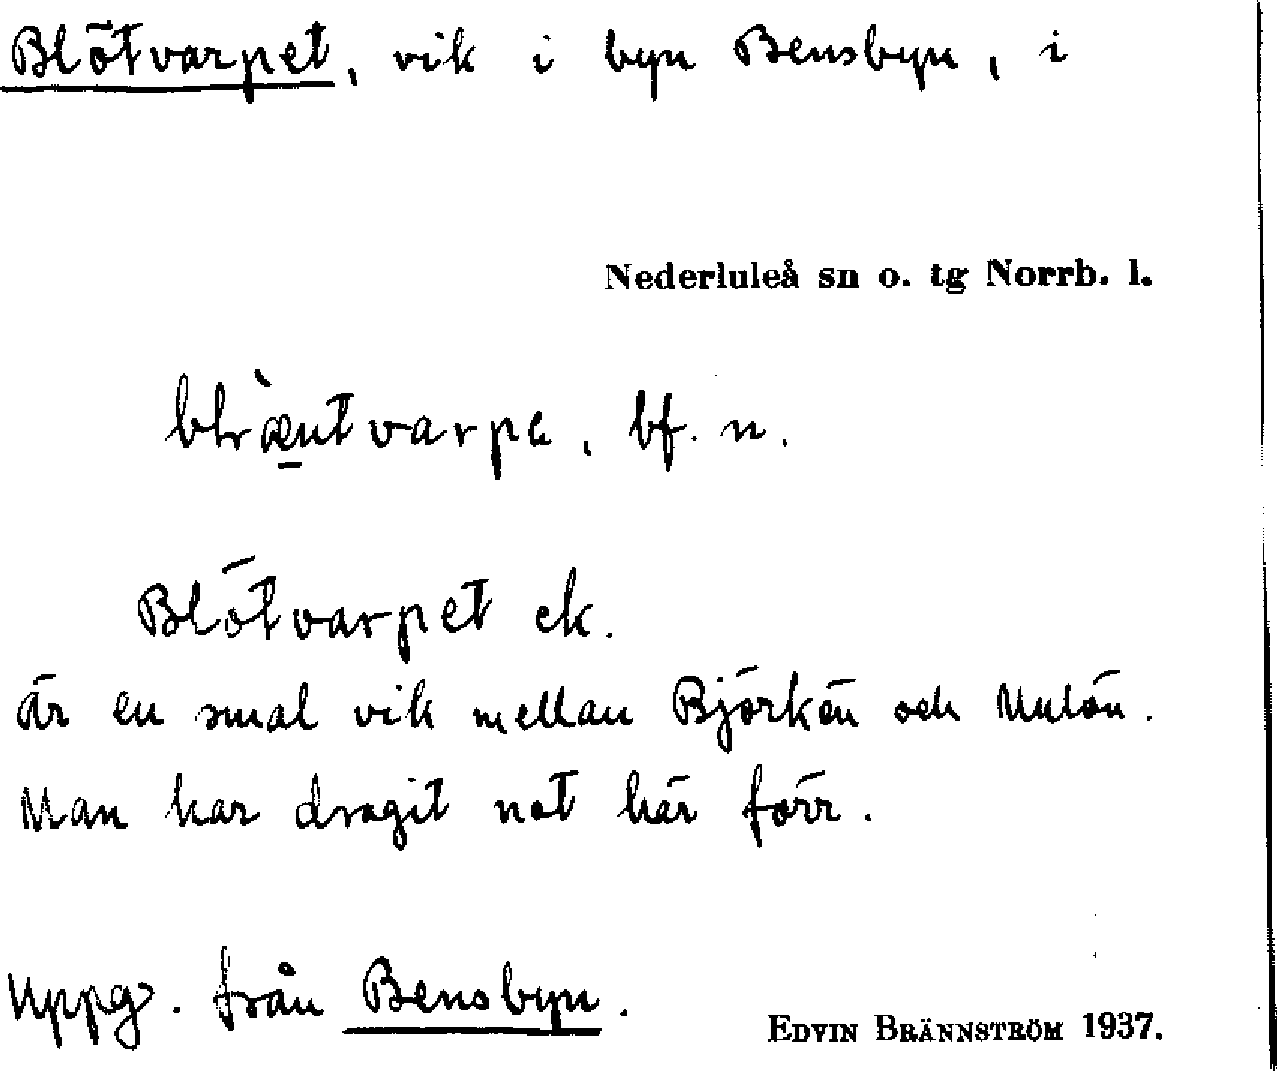 Blötvarpet, vik i byn Bensbyn, i
Nederluleå sn o. tg Norrb. l.
bf. n.
Blötvarpet ek.
är en smal vik mellan Björkön och Mulön.
Man har dragit not här förr.
Uppg. från Bensbyn.
EDVIN BRÄNNSTRÖM 1937.